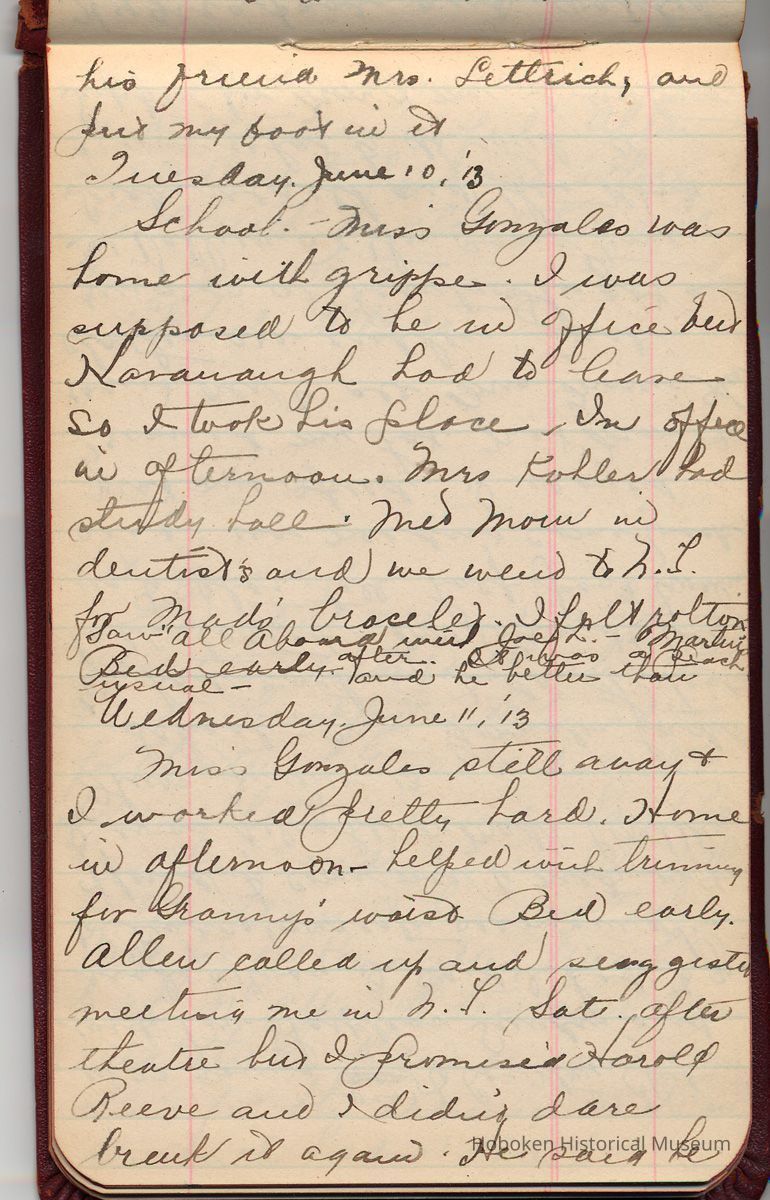 his friend Mrs. Lettrich, and
put my foot in it
Tuesday. June 10, '13
School. - Miss Gonzales was
home with grippe. I was
supposed to be in office but
Kavanaugh had to leave
so I took his place. In office
in afternoon. Mrs Kohler had
study hall. Met Mom in
dentist's and we went to N.Y.
for Mado's bracelet. I felt rotton
Saw "all Aboard" with Joe L. - Marlie
Bed early. after. It was a peach
usual - and he better than
Wednesday. June 11, '13
Miss Gonzales still away &
I worked pretty hard. Home
in afternoon - helped with trimming
for Granny's waist Bed early.
Allen called up and suggested
meeting me in N.Y. Sat. after
theatre but I promised Harold
Reeve and I didn't dare
break it again. He said he
Hoboken Historical Museum